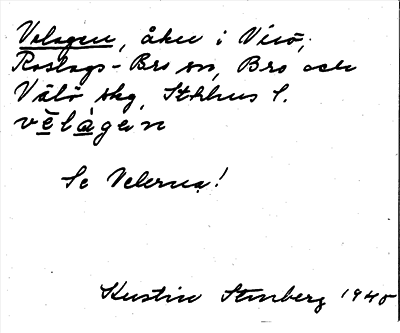 Velagen, åker i Virö,
Roslags-Bro sn, Bro och
Välö skg, Sthlms l.
vēlàgen
Se Velerna!
Kerstin Stenberg 1940